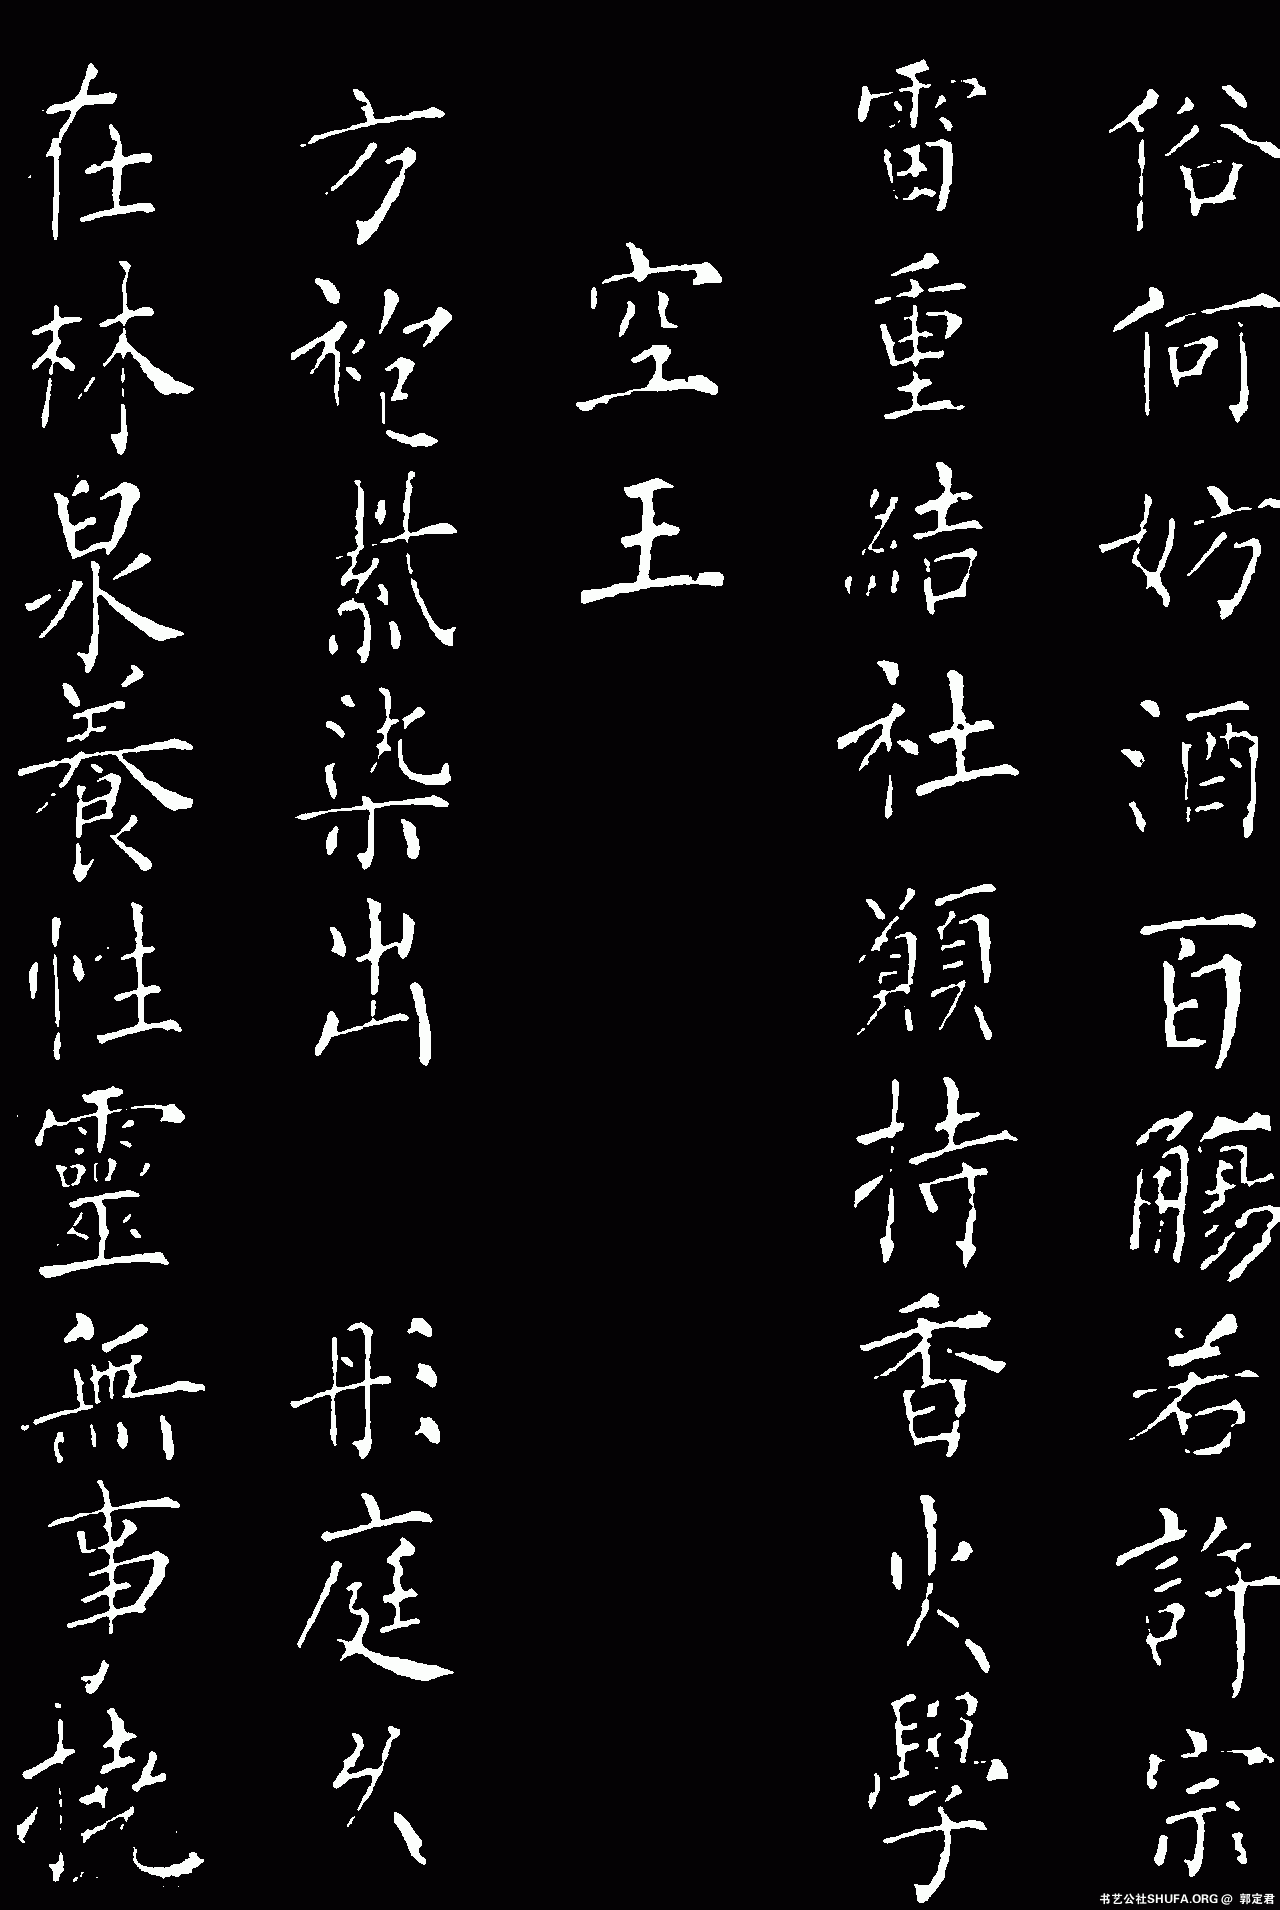 俗何妨酒百觴若許宗
雷重結社願持香火學
空王
方袍紫染出 彤庭久
在林泉養性靈無事撓
书艺公社SHUFA.ORG @ 郭定君